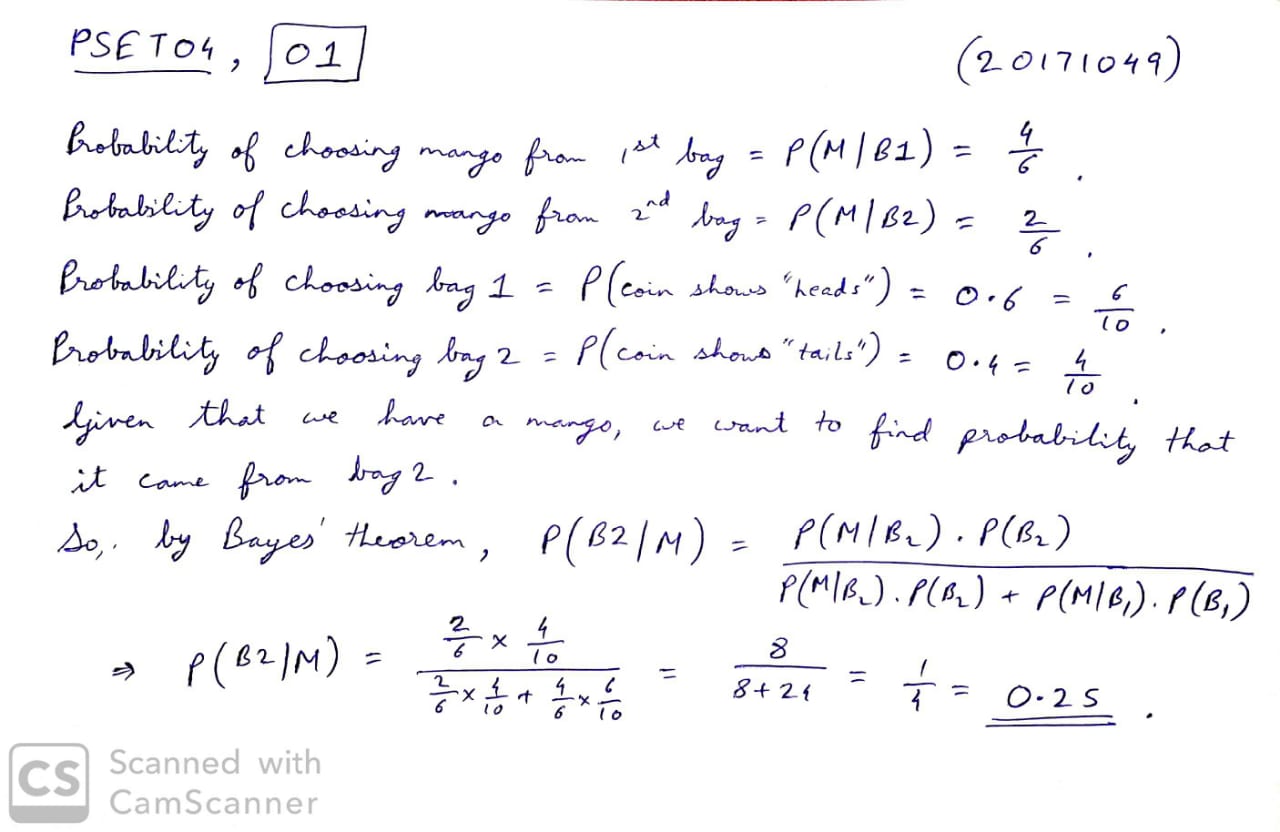 PSET04, 01 (20171049)
Probability of choosing mango from 1st bag = P(M|B1) = 4/6.
Probability of choosing mango from 2nd bag = P(M|B2) = 2/6.
Probability of choosing bag 1 = P(coin shows "heads") = 0.6 = 6/10.
Probability of choosing bag 2 = P(coin shows "tails") = 0.4 = 4/10.
Given that we have a mango, we want to find probability that
it came from bag 2.
So, by Bayes' theorem, P(B2|M) = P(M|B₂).P(B₂) / P(M|B₂).P(B₂) + P(M|B₁).P(B₁)
⇒ P(B2|M) = (2/6 × 4/10) / (2/6 × 4/10 + 4/6 × 6/10) = 8/(8+24) = 1/4 = 0.25.
CS Scanned with
CamScanner